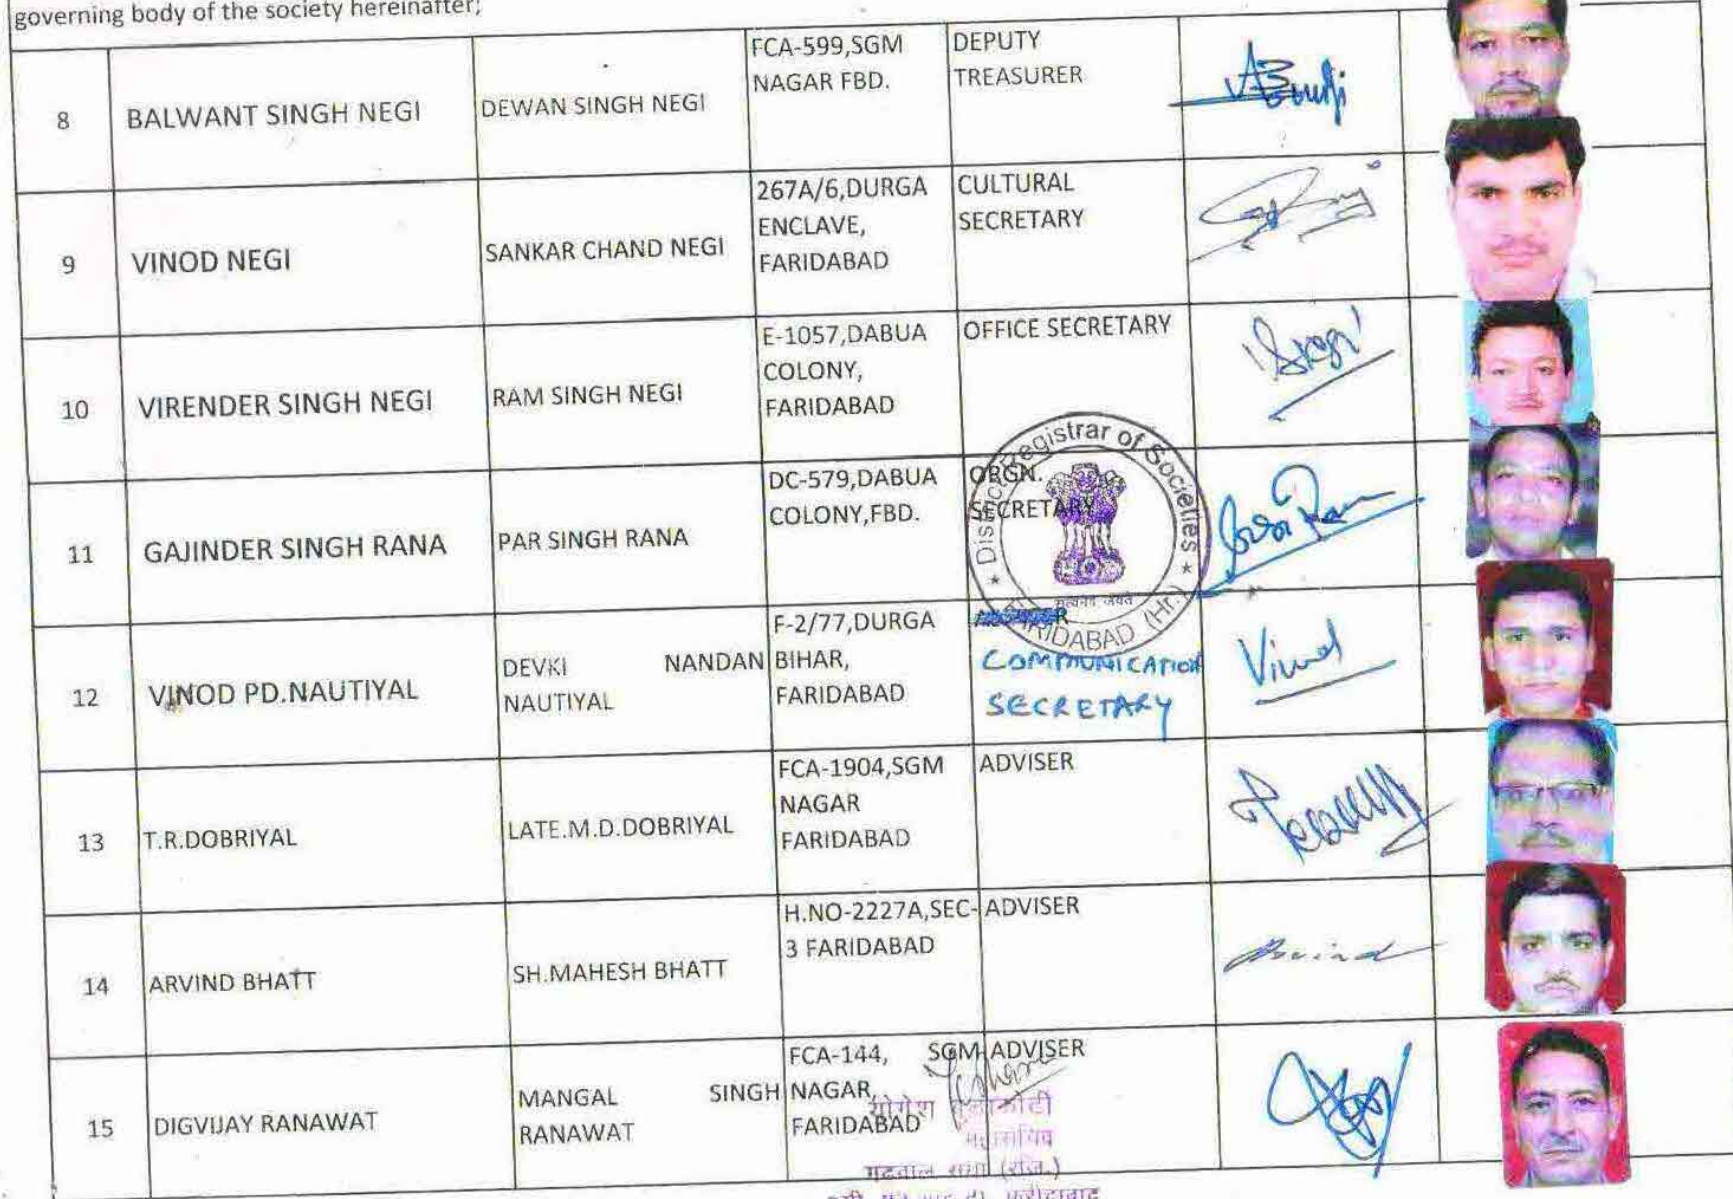 governing body of the society hereinafter;
8 BALWANT SINGH NEGI DEWAN SINGH NEGI FCA-599,SGM NAGAR FBD. DEPUTY TREASURER
9 VINOD NEGI SANKAR CHAND NEGI 267A/6,DURGA ENCLAVE, FARIDABAD CULTURAL SECRETARY
10 VIRENDER SINGH NEGI RAM SINGH NEGI E-1057,DABUA COLONY, FARIDABAD OFFICE SECRETARY
11 GAJINDER SINGH RANA PAR SINGH RANA DC-579,DABUA COLONY,FBD. ORGN. SECRETARY
District Registrar of Societies
सत्यमेव जयते
FARIDABAD (Hr.)
12 VINOD PD.NAUTIYAL DEVKI NANDAN NAUTIYAL F-2/77,DURGA BIHAR, FARIDABAD COMMUNICATION SECRETARY Vinod
13 T.R.DOBRIYAL LATE.M.D.DOBRIYAL FCA-1904,SGM NAGAR FARIDABAD ADVISER
14 ARVIND BHATT SH.MAHESH BHATT H.NO-2227A,SEC-3 FARIDABAD ADVISER Arvind
15 DIGVIJAY RANAWAT MANGAL SINGH RANAWAT FCA-144, SGM NAGAR, FARIDABAD ADVISER
योगेश
महासचिव
गढवाल सभा (रजि.)
फरीदाबाद